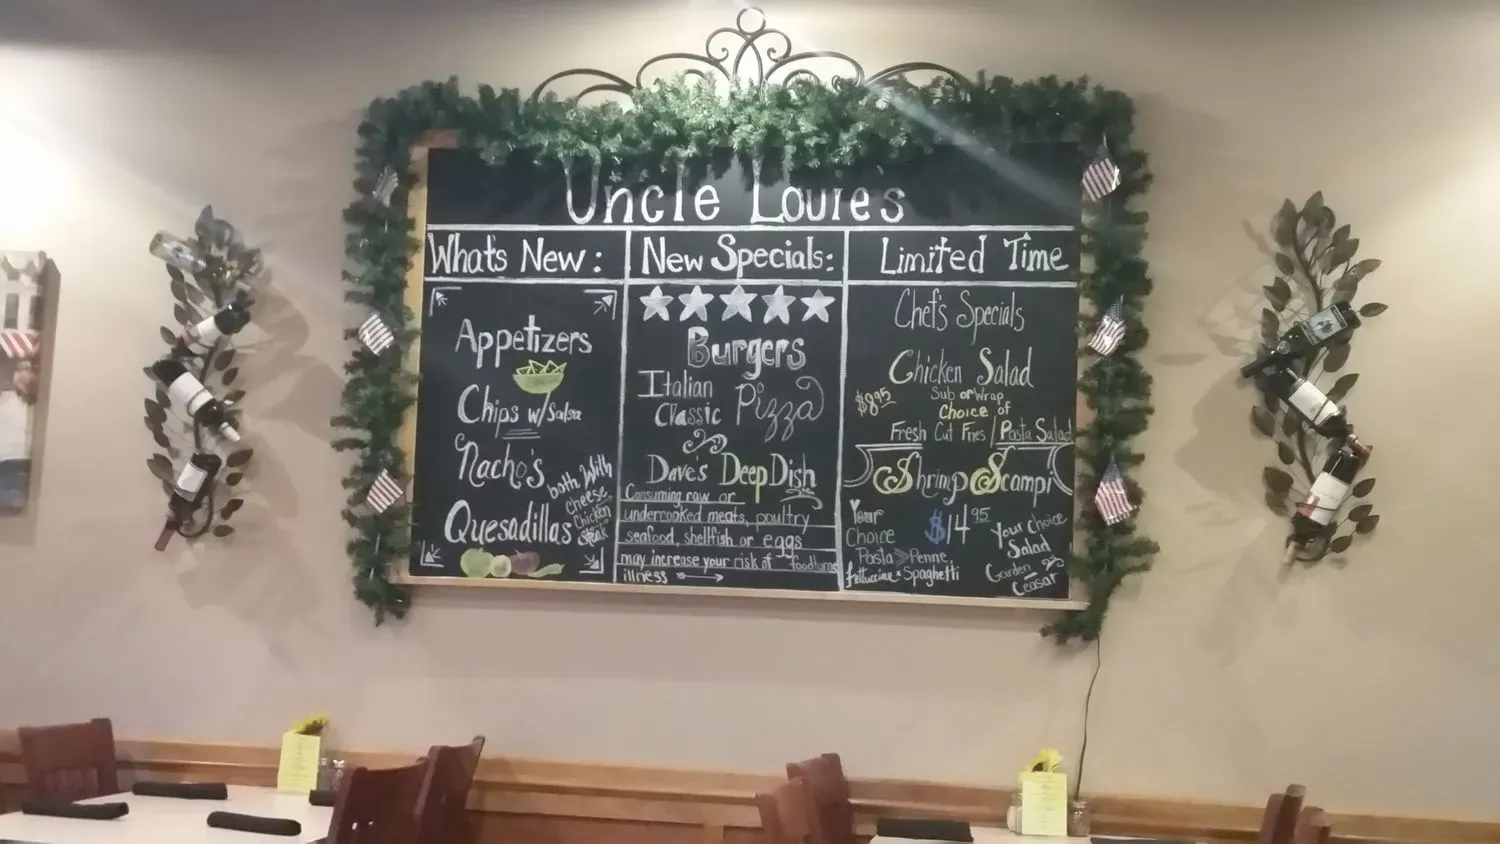 Uncle Louie's
What's New:
Appetizers
Chips w/Salsa
Nacho's
Quesadillas
both With
cheese
Chicken
steak
New Specials:
Burgers
Italian
Classic Pizza
Dave's Deep Dish
Consuming raw or
undercooked meats, poultry
seafood, shellfish or eggs
may increase your risk of foodborne
illness
Limited Time
Chef's Specials
Chicken Salad
$8.95
Sub or Wrap
Choice of
Fresh Cut Fries / Pasta Salad
Shrimp Scampi
Your
Choice
$14.95
Pasta > Penne,
fettuccine * Spaghetti
Your Choice
Salad
Garden
Ceasar